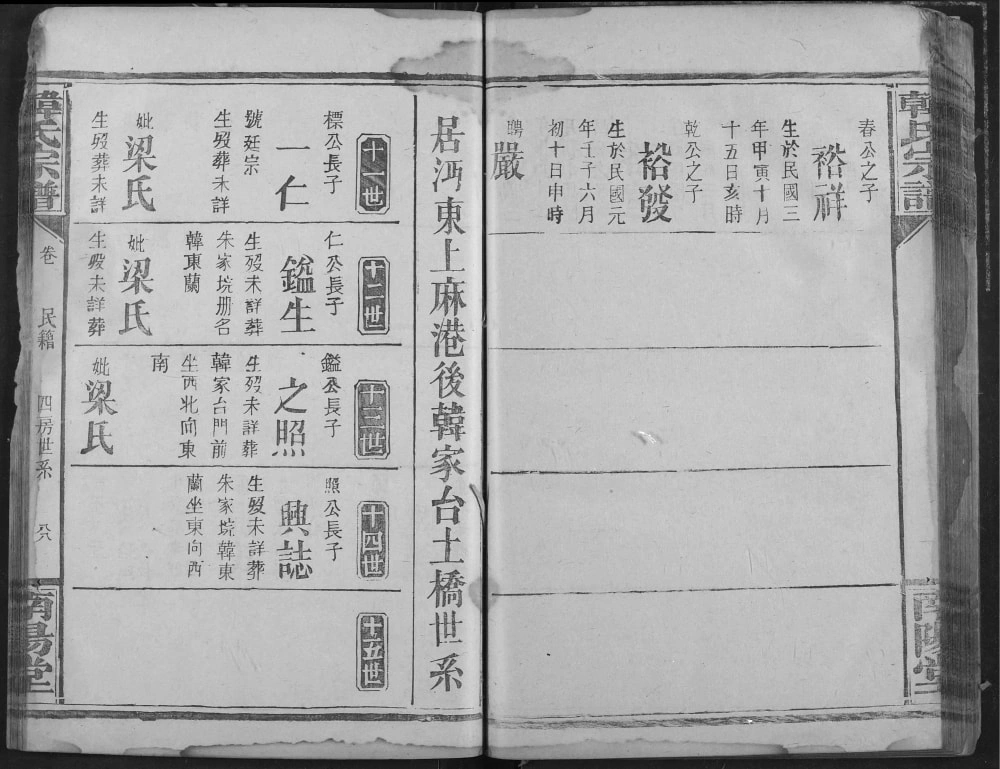 韓氏宗譜
南陽堂
春公之子
裕祥
生於民國三
年甲寅十月
十五日亥時
乾公之子
裕發
生於民國元
年壬子六月
初十日申時
聘
嚴
居沔東上麻港後韓家台土橋世系
十一世
標公長子
一仁
號廷宗
生歿葬未詳
妣
梁氏
生歿葬未詳
十二世
仁公長子
鎰生
生歿未詳葬
朱家垸册名
韓東蘭
妣
梁氏
生歿未詳葬
十三世
鎰公長子
之照
生歿未詳葬
韓家台門前
坐西北向東
南
妣
梁氏
十四世
照公長子
興誌
生歿未詳葬
朱家垸韓東
蘭坐東向西
十五世
韓氏宗譜
卷
民籍
四房世系
南陽堂